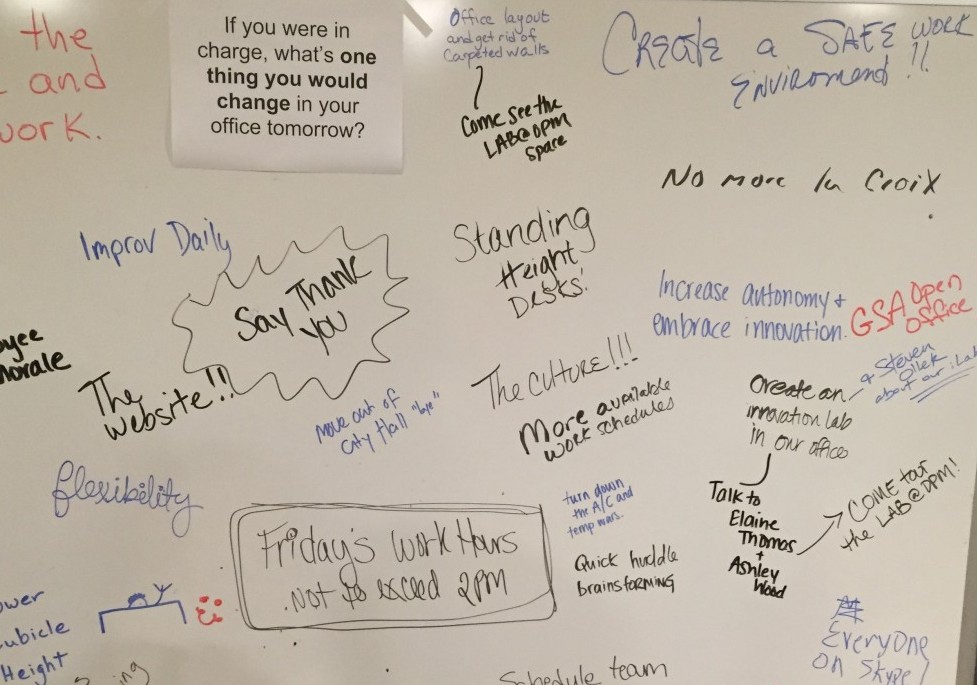 the
and
work.
If you were in
charge, what's one
thing you would
change in your
office tomorrow?
Office layout
and get rid of
Carpeted walls
Come see the
LAB@DPM
space
CREATE a SAFE WORK
ENVIROMENT !!
No more La Croix
Improv Daily
Say Thank
you
Standing
Height
Desks!
Increase autonomy +
embrace innovation.
GSA Open
Office
oyee
morale
The
website!!
move out of
City Hall "bye"
The CUTURE!!!
More available
work schedules
Create an
innovation lab
in our office
+ Steven
about our iLab
Talk to
Elaine
Thomas
+
Ashley
Wood
COME tour
the LAB@DPM!
flexibility
Friday's Work Hours
Not to exceed 2PM
turn down
the A/C and
temp wars.
Quick huddle
brainstorming
ower
cubicle
Height
Schedule team
EveryOne
on Skype!